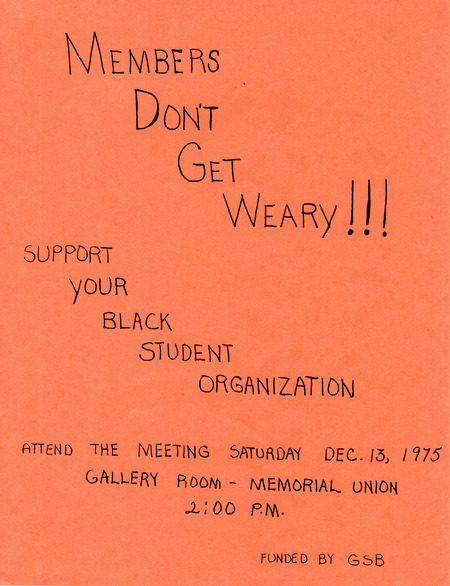 MEMBERS
DON'T
GET
WEARY!!!
SUPPORT
YOUR
BLACK
STUDENT
ORGANIZATION
ATTEND THE MEETING SATURDAY DEC. 13, 1975
GALLERY ROOM - MEMORIAL UNION
2:00 P.M.
FUNDED BY GSB